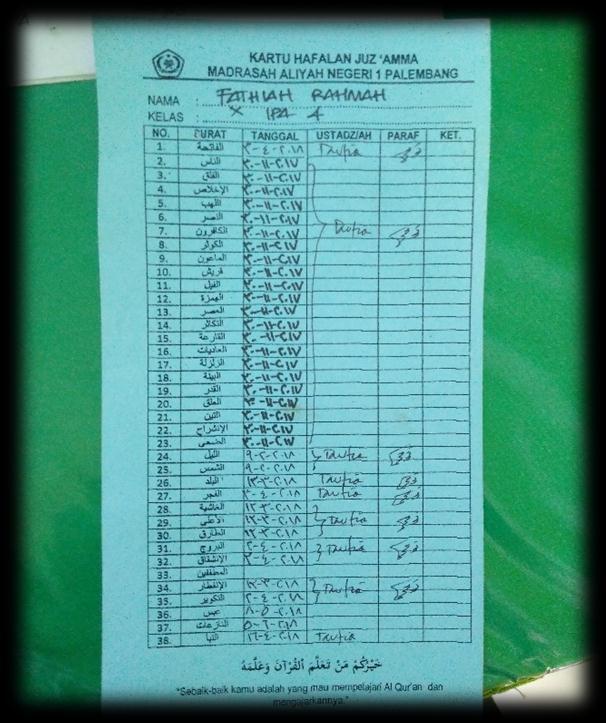 KARTU HAFALAN JUZ 'AMMA
MADRASAH ALIYAH NEGERI 1 PALEMBANG
NAMA : FATHIAH RAHMAH
KELAS : X IPA 4
NO. SURAT TANGGAL USTADZ/AH PARAF KET.
1. الفاتحة ٣-٤-٢٠١٨ Taufia
2. الناس ٣٠-١١-٢٠١٧
3. الفلق ٣٠-١١-٢٠١٧
4. الإخلاص ٣٠-١١-٢٠١٧
5. اللهب ٣٠-١١-٢٠١٧
6. النصر ٣٠-١١-٢٠١٧
7. الكافرون ٣٠-١١-٢٠١٧ Taufia
8. الكوثر ٣٠-١١-٢٠١٧
9. الماعون ٣٠-١١-٢٠١٧
10. قريش ٣٠-١١-٢٠١٧
11. الفيل ٣٠-١١-٢٠١٧
12. الهمزة ٣٠-١١-٢٠١٧
13. العصر ٣٠-١١-٢٠١٧
14. التكاثر ٣٠-١١-٢٠١٧
15. القارعة ٣٠-١١-٢٠١٧
16. العاديات ٣٠-١١-٢٠١٧
17. الزلزلة ٣٠-١١-٢٠١٧
18. البينة ٣٠-١١-٢٠١٧
19. القدر ٣٠-١١-٢٠١٧
20. العلق ٣٠-١١-٢٠١٧
21. التين ٣٠-١١-٢٠١٧
22. الإنشراح ٣٠-١١-٢٠١٧
23. الضحى ٣٠-١١-٢٠١٧
24. الليل ٩-٢-٢٠١٨ Taufia
25. الشمس ٩-٢-٢٠١٨
26. البلد ١٣-٣-٢٠١٨ Taufia
27. الفجر ٣-٤-٢٠١٨ Taufia
28. الغاشية ١٣-٣-٢٠١٨
29. الأعلى ١٣-٣-٢٠١٨ Taufia
30. الطارق ١٣-٣-٢٠١٨
31. البروج ٢-٤-٢٠١٨ Taufia
32. الإنشقاق ٢-٤-٢٠١٨
33. المطففين
34. الإنفطار ١٣-٣-٢٠١٨ Taufia
35. التكوير ٢-٤-٢٠١٨
36. عبس ٨-٥-٢٠١٨
37. النازعات
38. النبأ ١٦-٤-٢٠١٨ Taufia
خَيْرُكُمْ مَنْ تَعَلَّمَ الْقُرْآنَ وَعَلَّمَهُ
"Sebaik-baik kamu adalah yang mau mempelajari Al Qur'an dan
mengajarkannya."